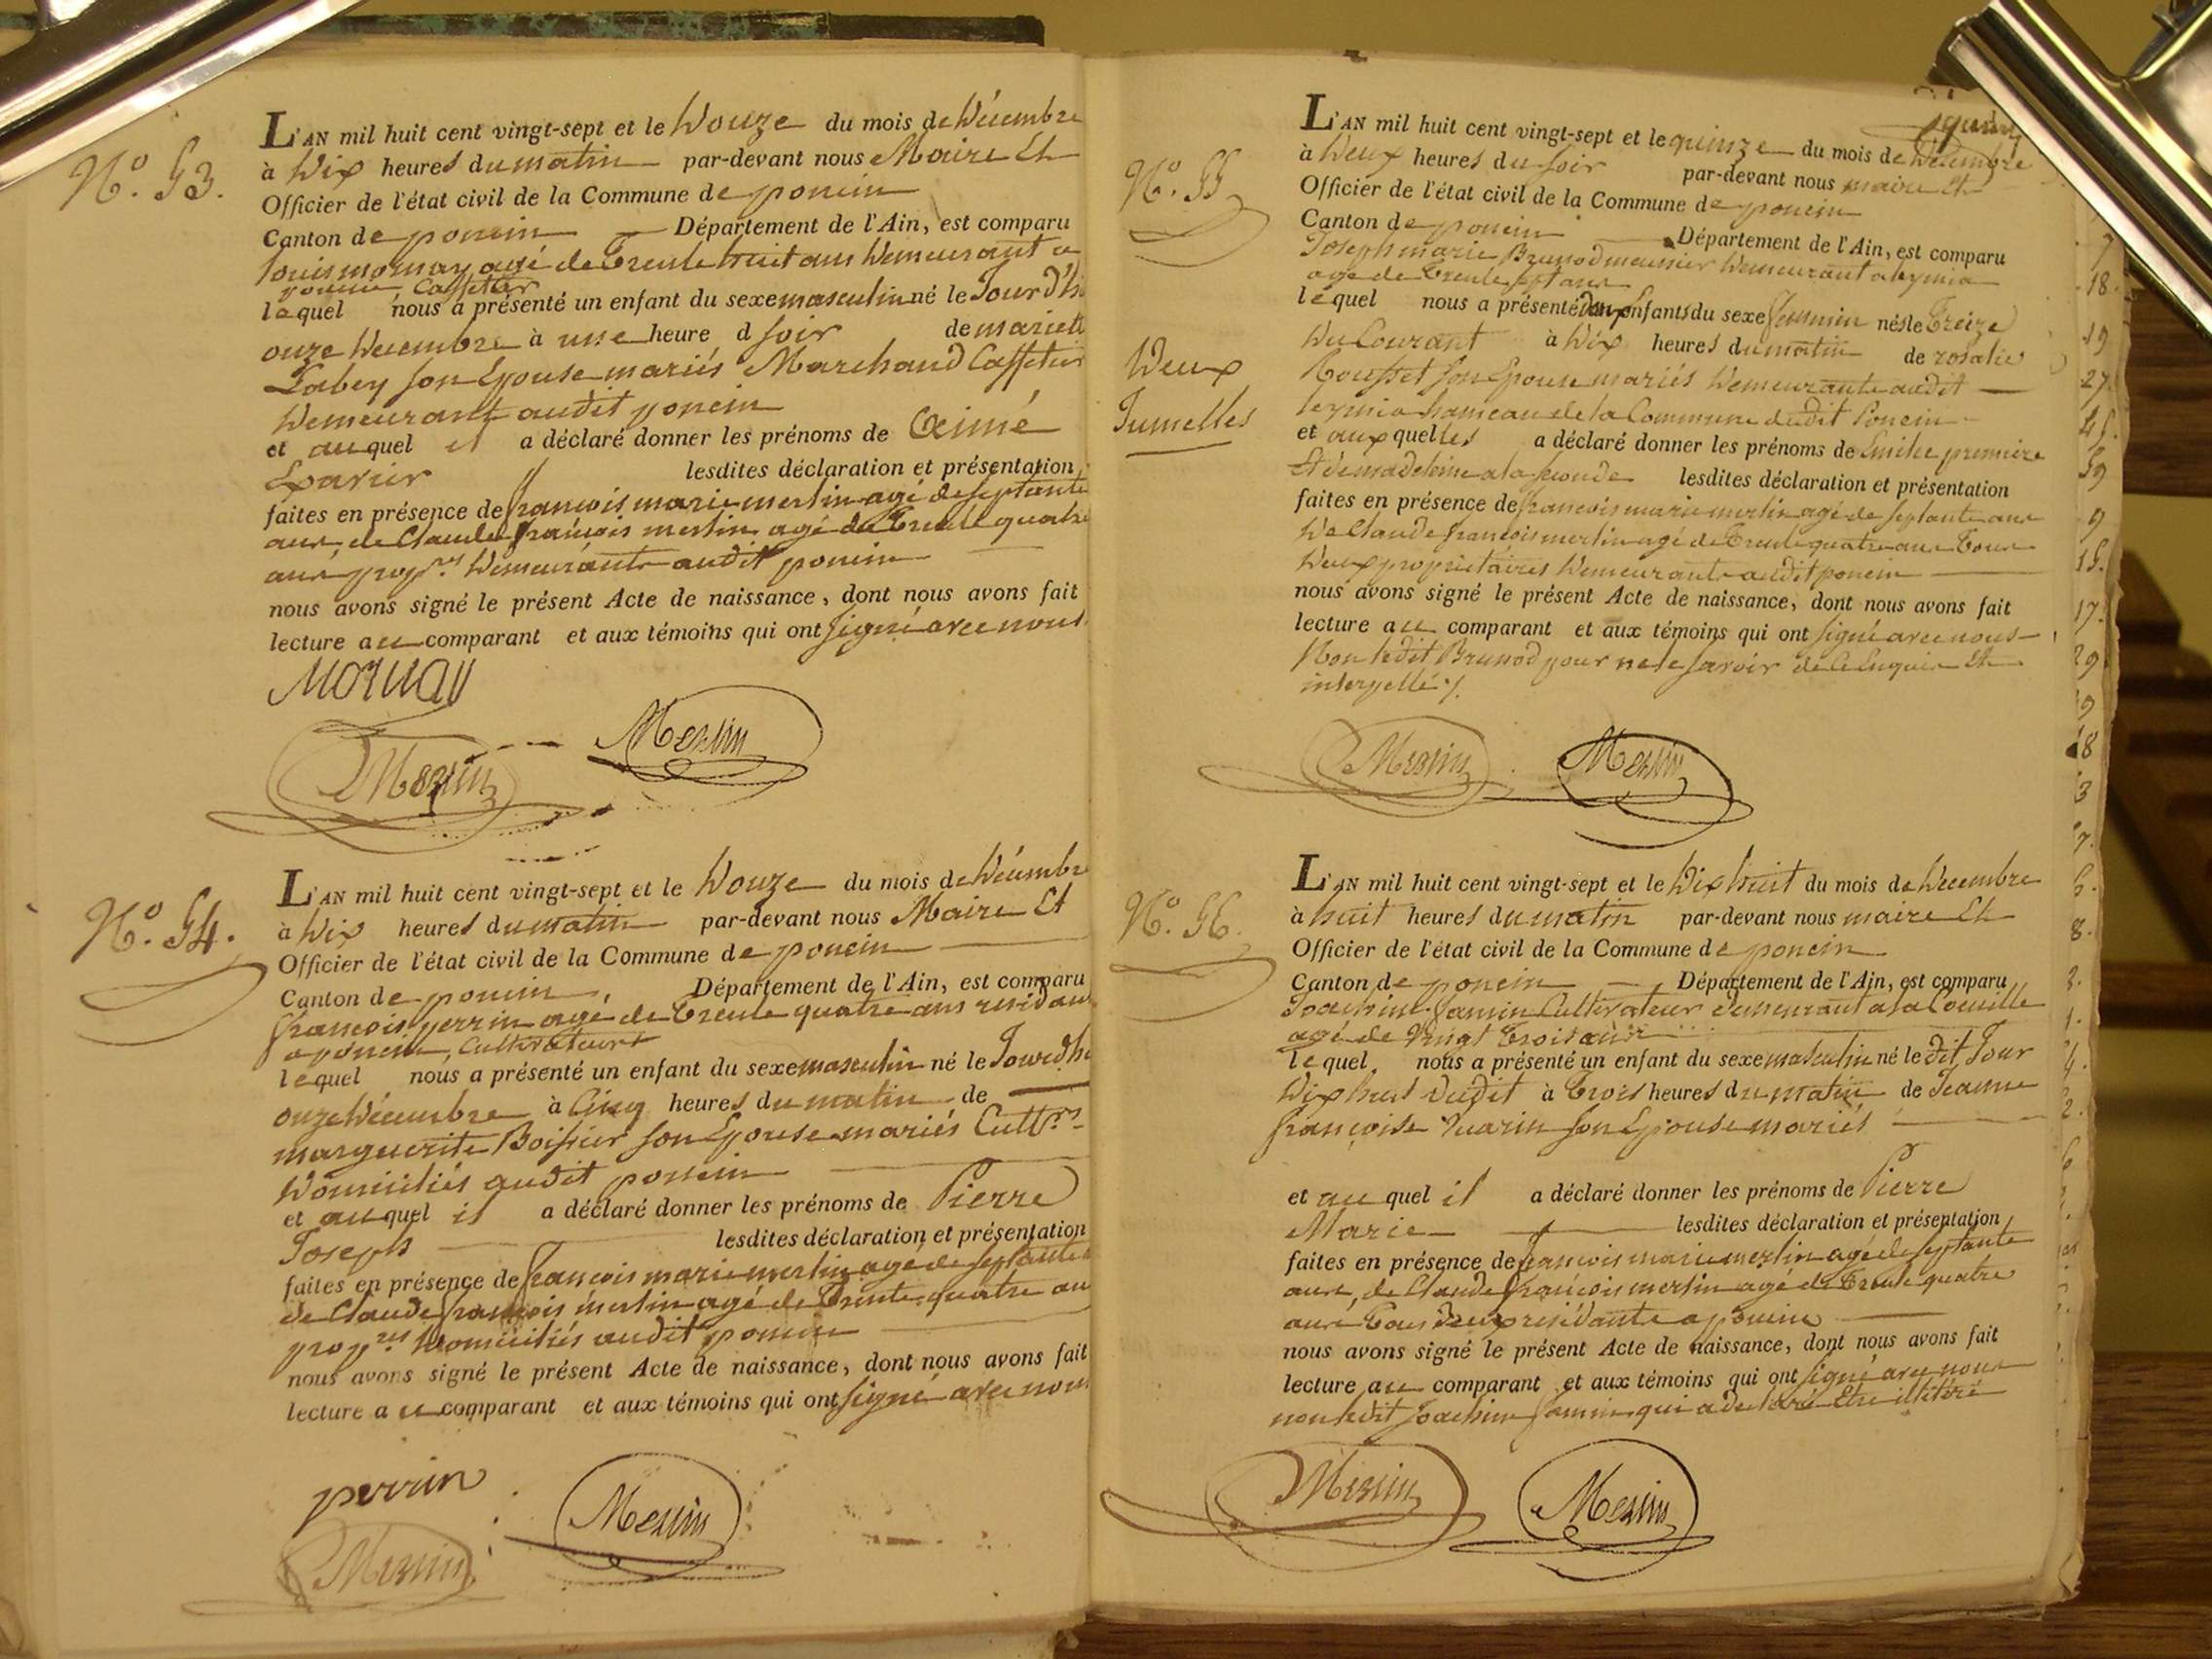 N.o 53.
L'AN mil huit cent vingt-sept et le Douze du mois de Décembre
à Dix heures du matin par-devant nous Maire Et
Officier de l'état civil de la Commune de poncin
Canton de poncin Département de l'Ain, est comparu
louis mornay agé de Trente huit ans Demeurant a
poncin Caffetier
lequel nous a présenté un enfant du sexe masculin né le Jour d'hi
onze Décembre à une heure d soir de mariett
Labey son Epouse mariés Marchand Caffetier
Demeurant audit poncin
et auquel il a déclaré donner les prénoms de Aimé
Xavier lesdites déclaration et présentation
faites en présence de françois marie merlin agé de septante
ans, de Claude françois merlin agé de Trente quatre
ans prop.res Demeurants audit poncin
nous avons signé le présent Acte de naissance, dont nous avons fait
lecture au comparant et aux témoins qui ont signé avec nous
Mornay
Merlin Merlin
N.o 54.
L'AN mil huit cent vingt-sept et le Douze du mois de Décembre
à Dix heures du matin par-devant nous Maire Et
Officier de l'état civil de la Commune de poncin
Canton de poncin Département de l'Ain, est comparu
françois perrin agé de Trente quatre ans residant
a poncin, Cultivateur
lequel nous a présenté un enfant du sexe masculin né le Jour d'hi
onze Décembre à Cinq heures du matin de
marguerite Boissier son Epouse mariés Cult.rs
Domiciliés audit poncin
et auquel il a déclaré donner les prénoms de Pierre
Joseph lesdites déclaration et présentation
faites en présence de françois marie merlin agé de septante
de Claude françois merlin agé de Trente quatre an
prop.res Domiciliés audit poncin
nous avons signé le présent Acte de naissance, dont nous avons fait
lecture au comparant et aux témoins qui ont signé avec nous
perrin
Merlin Merlin
N.o 55
Deux
Jumelles
L'AN mil huit cent vingt-sept et le quinze du mois de Décembre
à Deux heures du soir par-devant nous maire Et
Officier de l'état civil de la Commune de poncin
Canton de poncin Département de l'Ain, est comparu
Joseph marie Brunod meunier Demeurant a leymia
agé de Trente sept ans
lequel nous a présenté deux enfants du sexe feminin nés le Treize
Du Courant à Dix heures du matin de rosalie
Rousset son Epouse mariés Demeurants audit
leymia hameau de la Commune dudit Poncin
et auxquelles a déclaré donner les prénoms de Emilie première
Et de madeleine a la seconde lesdites déclaration et présentation
faites en présence de francois marie merlin agé de septante ans
De Claude francois merlin agé de Trente quatre ans Tous
Deux propriétaires Demeurants audit poncin
nous avons signé le présent Acte de naissance, dont nous avons fait
lecture au comparant et aux témoins qui ont signé avec nous
Non ledit Brunod pour ne le savoir de Ce Enquis Et
interpellé
Merlin Merlin
N.o 56.
L'AN mil huit cent vingt-sept et le Dix huit du mois de Decembre
à huit heures du matin par-devant nous maire Et
Officier de l'état civil de la Commune de poncin
Canton de poncin Département de l'Ain, est comparu
Joachim Cultivateur demeurant a la
agé de Vingt Trois ans
lequel nous a présenté un enfant du sexe masculin né le dit Jour
Dix huit dudit à Trois heures du matin de Jeanne
françoise son Epouse mariés
et au quel il a déclaré donner les prénoms de Pierre
Marie lesdites déclaration et présentation
faites en présence de francois marie merlin agé de septante
ans, de Claude françois merlin agé de Trente quatre
ans Tous Deux residants a poncin
nous avons signé le présent Acte de naissance, dont nous avons fait
lecture au comparant et aux témoins qui ont signé avec nous
non ledit Joachim qui a declaré Etre illitéré
Merlin Merlin